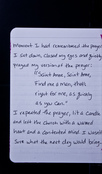 Moment I had remembered the prayer
I sat down, closed my eyes and quietly
prayed my version of the prayer:
"Saint Anne, Saint Anne,
Find me a man, that's
right for me, as quickly
as you can."
I repeated the prayer, lit a candle
and left the church with a warmed
heart and a contented mind. I wasn't
sure what the next day would bring,